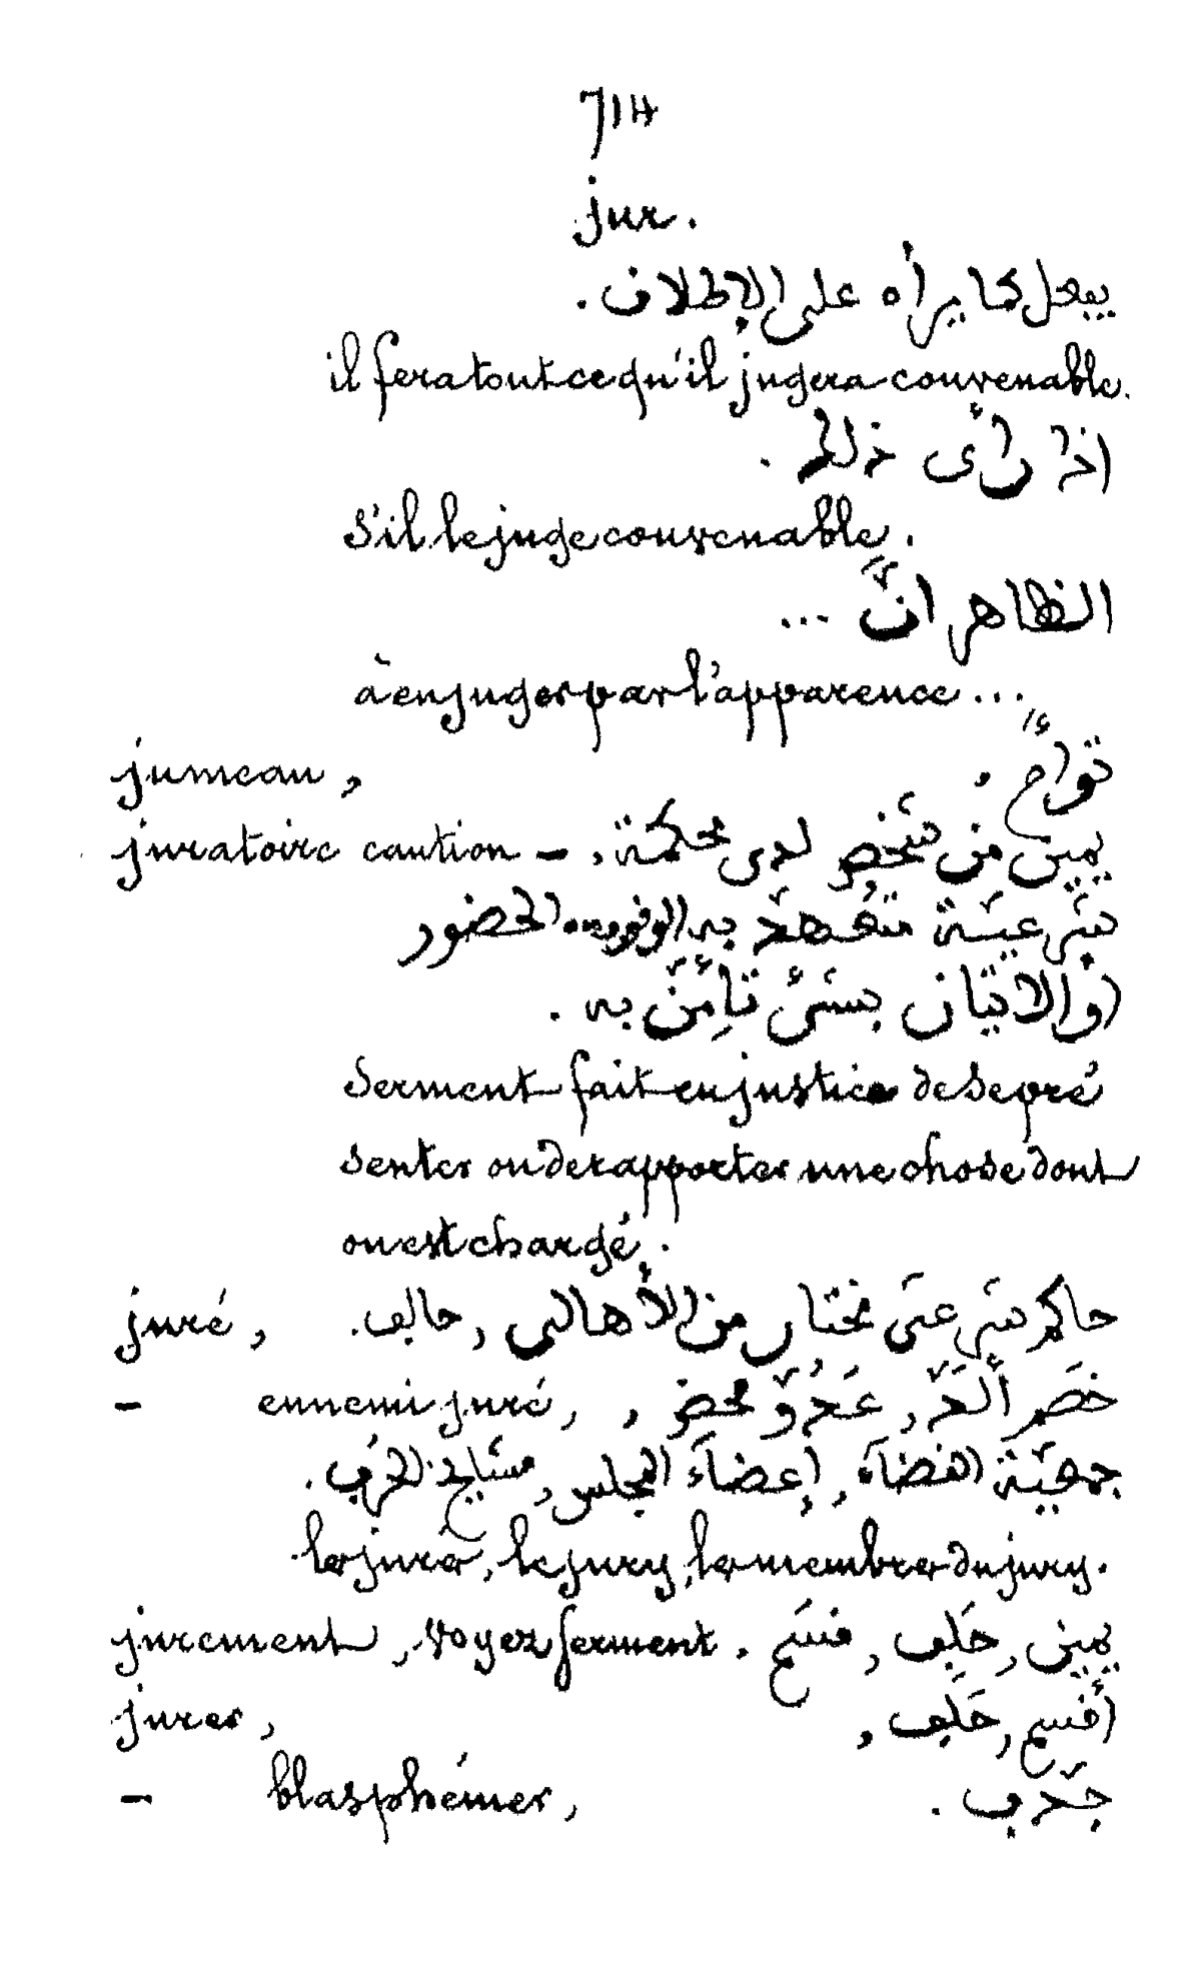 714
jur.
يفعل كما يرأه على الإطلاق.
il fera tout ce qu'il jugera convenable.
اذا رأى ذلك.
S'il le juge convenable.
الظاهر انّ ...
à en juger par l'apparence ...
jumeau, توأم,
juratoire caution – يمين من شخص لدى محكمة,
شرعيّة متعهد به الحضور
والاتيان بشئ تأمّن به.
Serment fait en justice de se pré
senter ou de rapporter une chose dont
on est chargé.
juré, حاكم شرعى مختار من الأهالى, حالف.
– ennemi juré, خصم ألدّ, عَدُوّ محض,
جمعيّة القضاة, إعضاء المجلس, مشايخ الحرف.
les jurés, le jury, les membres du jury.
jurement, voyez serment. يمين, حَلِف, قسَم
jurer, أقسم, حَلَف,
– blasphémer, جدّف.